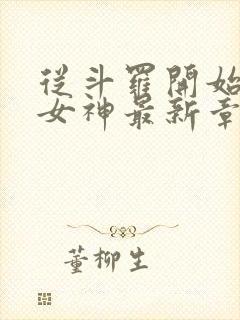 從斗羅開始
女神最新章
董柳生